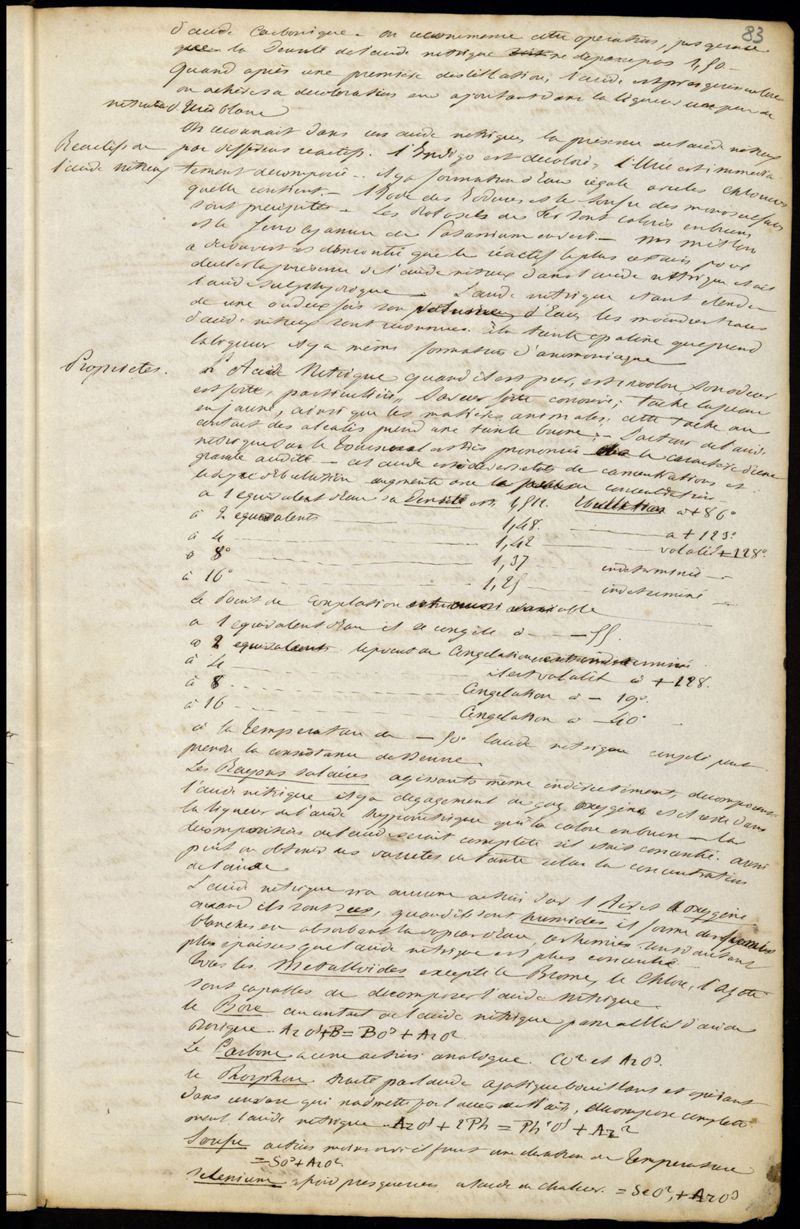 83
d'acide carbonique. on recommence cette opération, jusqu'à ce
que la Densité de l'acide nitrique ne dépasse pas 1,50
Quand après une première distillation, l'acide est presqu'incolore
on achève sa décoloration en ajoutant dans la liqueur un peu de
d'Urée blanc
Reactifs de
l'acide nitreux
On reconnait dans un acide nitrique, la présence de l'acide nitreux
par différens réactifs. l'Indigo est décoloré, l'Urée est immédia
tement décomposée. il y a formation d'eau régale avec les chlorures
qu'elle contient. l'Iode des Iodures et le Soufre des monosulfures
sont précipités. Les Protosels de Fer sont colorés en brun
et le Ferro cyanure de Potassium en vert. Mr Millon
a découvert et démontré que le réactif le plus certain pour
déceler la présence de l'acide nitreux dans l'acide nitrique était
l'acide sulphydrique. L'acide nitrique étant étendu
de une ou deux fois son volume d'Eau, les moindres traces
d'acide nitreux sont reconnues à la teinte opaline que prend
la liqueur il y a même formation d'ammoniaque
Propriétés.
L'Acide Nitrique quand il est pur, est incolore son odeur
est forte, particulière, saveur forte corrosive; tache la peau
en jaune, ainsi que les matières animales, cette tache au
contact des alcalis prend une teinte brune. L'action de l'acide
nitrique sur le Tournesol est très prononcée a le caractère d'une
grande acidité. cet acide est à divers états de concentrations et
le degré d'ébulition augmente avec la concentration
a 1 equivalent d'eau sa Densité est 1,512. Ebullition a + 86°
à 2 equivalents 1,48. a + 123°
à 4 1,42 volatil + 128°
à 8° 1,37 indéterminé
à 16° 1,25 indéterminé
le Point de Congélation variable
a 1 equivalent d'eau il se congèle à - 55.
à 2 equivalents le point de Congelation indéterminé
à 4 il est volatil à + 128.
à 8 Congélation à - 19°
à 16 Congelation à - 40°
à la Temperature de - 50° l'acide nitrique congelé peut
prendre la consistance du Beurre
Les Rayons solaires agissants même indirectement, decomposent
l'acide nitrique il y a degagement de gaz oxygène et il reste dans
la liqueur de l'acide hypoazotique qui la colore en brun. la
decomposition de l'acide serait complette s'il était concentré. aussi
peut-on obtenir des variétés de teinte selon la concentration
de l'acide
L'acide nitrique n'a aucune action sur l'Air et l'oxygène
quand ils sont secs, quand ils sont humides il forme des fumées
blanches en absorbant la vapeur d'eau, ces fumées sont d'autant
plus épaisses que l'acide nitrique est plus concentré
Tous les Metalloïdes excepté le Brome, le Chlore, l'azote
sont capables de decomposer l'acide Nitrique
le Bore au contact de l'acide nitrique passe à l'état d'acide
Borique. AzO⁵+B = BO³+AzO²
Le Carbone a une action analogue. CO² et AzO².
le Phosphore traité par l'acide azotique bouillant et opérant
dans un vase qui n'admette pas l'accès de l'air, décompose complette
ment l'acide nitrique AzO⁵ + 2Ph = Ph²O⁵ + Az²
Soufre action moins vive il faut une élévation de Temperature
= SO³+AzO²
Selenium à froid presque rien à l'aide de chaleur. = SeO², + AzO³